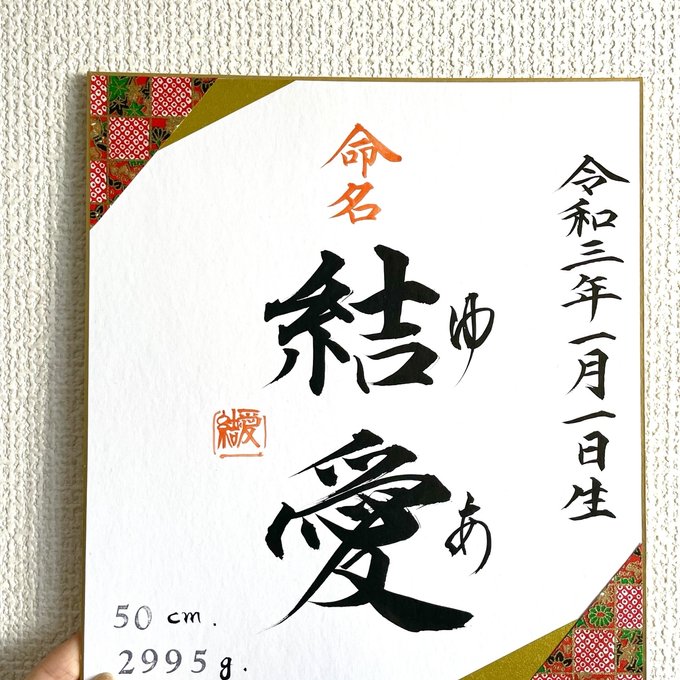 令和三年一月一日生
命名
結愛
ゆあ
結愛
50 cm.
2995 g.